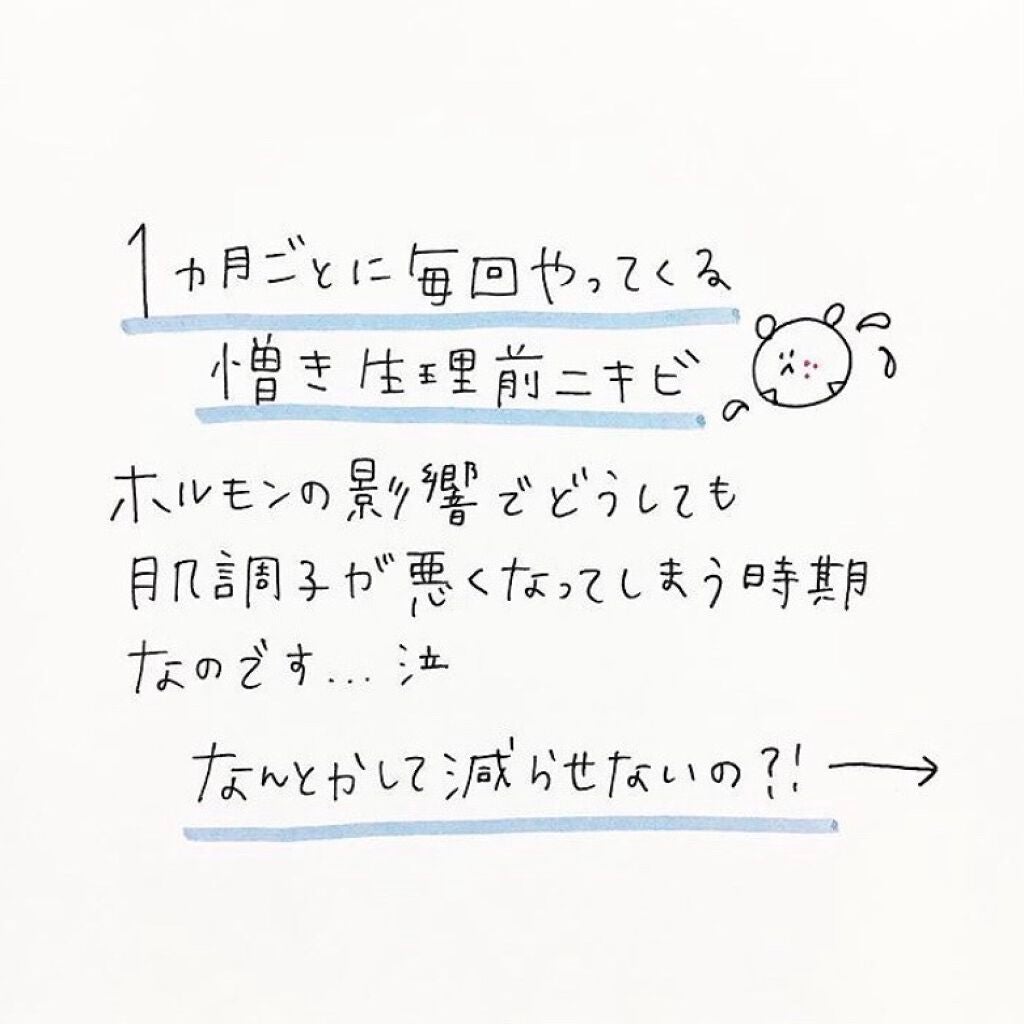 1ヵ月ごとに毎回やってくる
憎き生理前ニキビ
ホルモンの影響でどうしても
肌調子が悪くなってしまう時期
なのです...泣
なんとかして減らせないの?!→